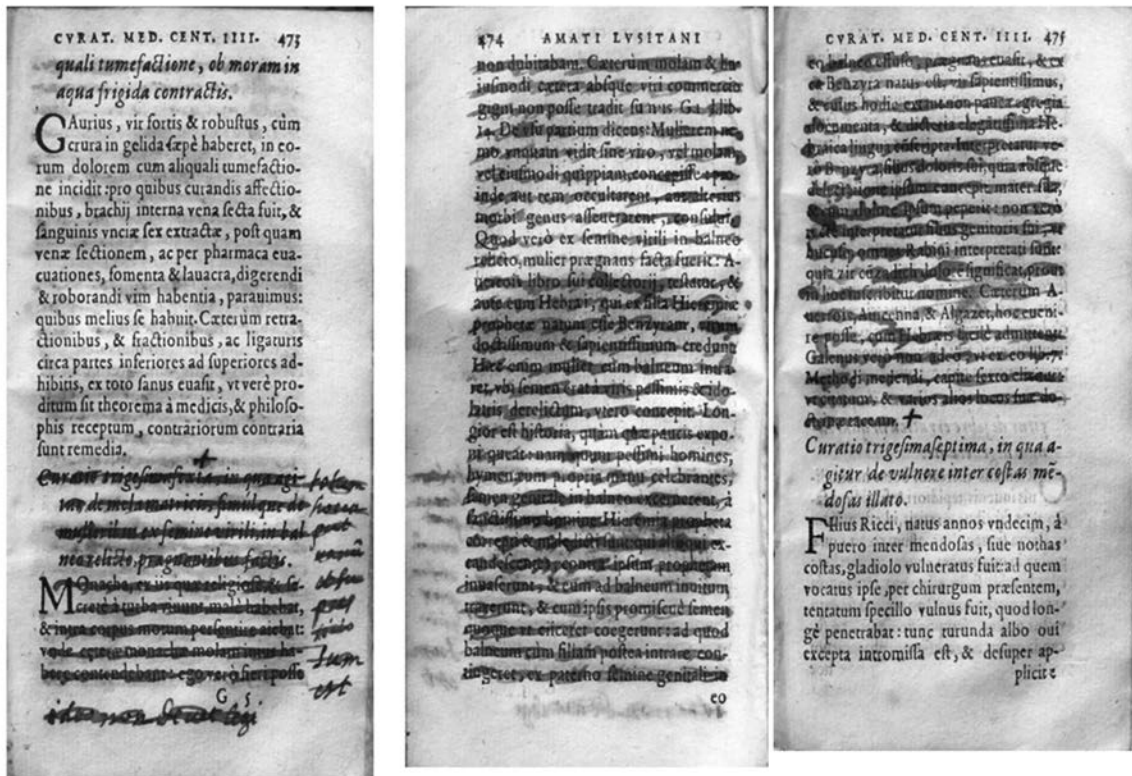 CVRAT. MED. CENT. IIII. 473
quali tumefactione, ob moram in
aqua frigida contractis.
GAurius, vir fortis & robuſtus, cùm
crura in gelida ſæpè haberet, in eo-
rum dolorem cum aliquali tumefactio-
ne incidit: pro quibus curandis affectio-
nibus, brachij interna vena ſecta fuit, &
ſanguinis vnciæ ſex extractæ, poſt quam
venæ ſectionem, ac per pharmaca eua-
cuationes, fomenta & lauacra, digerendi
& roborandi vim habentia, parauimus:
quibus melius ſe habuit. Cæterùm retra-
ctionibus, & fractionibus, ac ligaturis
circa partes inferiores ad ſuperiores ad-
hibitis, ex toto ſanus euaſit, vt verè pro-
ditum ſit theorema à medicis, & philoſo-
phis receptum, contrariorum contraria
ſunt remedia.
Curatio trigeſimaſexta, in qua agi-
tur de mola matricis, ſimúlque de
mulieribus ex ſemine virili, in bal
neo relicto, prægnantibus factis.
MOnacha, ex iis quæ religioſè, & ſe-
cretè à turba viuunt, malè habebat,
& intra corpus motum perſentire aiebat:
vnde cæteræ monachæ molam intus ha-
bere contendebant: ego verò fieri poſſe
G 5
non legi
eſt
474 AMATI LVSITANI
non dubitabam. Cæterum molam & hu
iuſmodi cætera abſque viri commercio
gigni non poſſe tradit ſummus Ga. lib.
14. De vſu partium dicens: Mulierem ne-
mo vnquam vidit ſine viro, vel molam,
vel eiuſmodi quippiam, concepiſſe:
inde, aut rem occultarent, aut alterius
morbi genus aſſeuerarent, conſului.
Quod verò ex ſemine virili in balneo
relicto, mulier prægnans facta fuerit: A-
uerrois libro ſui collectorij, teſtatur, &
ante eum Hebræi, qui ex filia Hieremiæ
prophetæ natum eſſe Benzyram, virum
doctiſſimum & ſapientiſſimum credunt
Hæc enim mulier cùm balneum intra-
ret, vbi ſemen erat à viris peſſimis & ido-
latris derelictum, vtero concepit. Lon-
gior eſt hiſtoria, quàm quæ paucis expo-
ni queat: nam quum peſſimi homines,
hymenæum propria manu celebrantes,
ſemen genitale in balneo excernerent, à
ſanctiſſimo homine Hieremia propheta
correpti & maledicti ſunt: qui aliqui ex-
candeſcentes, contra ipſum prophetam
inuaſerunt, & eum ad balneum inuitum
traxerunt, & cum ipſis promiſcuè ſemen
quoque vt eiiceret coegerunt: ad quod
balneum cùm filiam poſtea intrare con-
tingeret, ex paterno ſemine genitali in
eo
CVRAT. MED. CENT. IIII. 475
eo balneo effuſo, prægnans euaſit, & ex
ea Benzyra natus eſt, vir ſapientiſſimus,
& cuius hodie extant non pauca egregia
documenta, & dicteria elegantiſſima He-
braica lingua cōſcripta. Interpretatur ve-
rò Benzyra, filius doloris ſui, quia
ipſum concepit mater ſua,
& cum dolore ipſum peperit: non verò
interpretatur filius genitoris ſui, vt
omnes Rabini interpretati ſunt:
quia zir dolorē ſignificat, prout
in hoc inſcribitur nomine. Cæterum A-
uerrois, Auicenna, & Algazel, hoc eueni-
re poſſe, cum Hebræis
Galenus verò non adeo, vt ex eo lib. 7.
Methodi, medendi, capite ſexto
& varios alios locos ſuæ do-
Curatio trigeſimaſeptima, in qua a-
gitur de vulnere inter coſtas mē-
doſas illato.
FIlius Ricci, natus annos vndecim, à
puero inter mendoſas, ſiue nothas
coſtas, gladiolo vulneratus fuit: ad quem
vocatus ipſe, per chirurgum præſentem,
tentatum ſpecillo vulnus fuit, quod lon-
gè penetrabat: tunc turunda albo oui
excepta intromiſſa eſt, & deſuper ap-
plicite